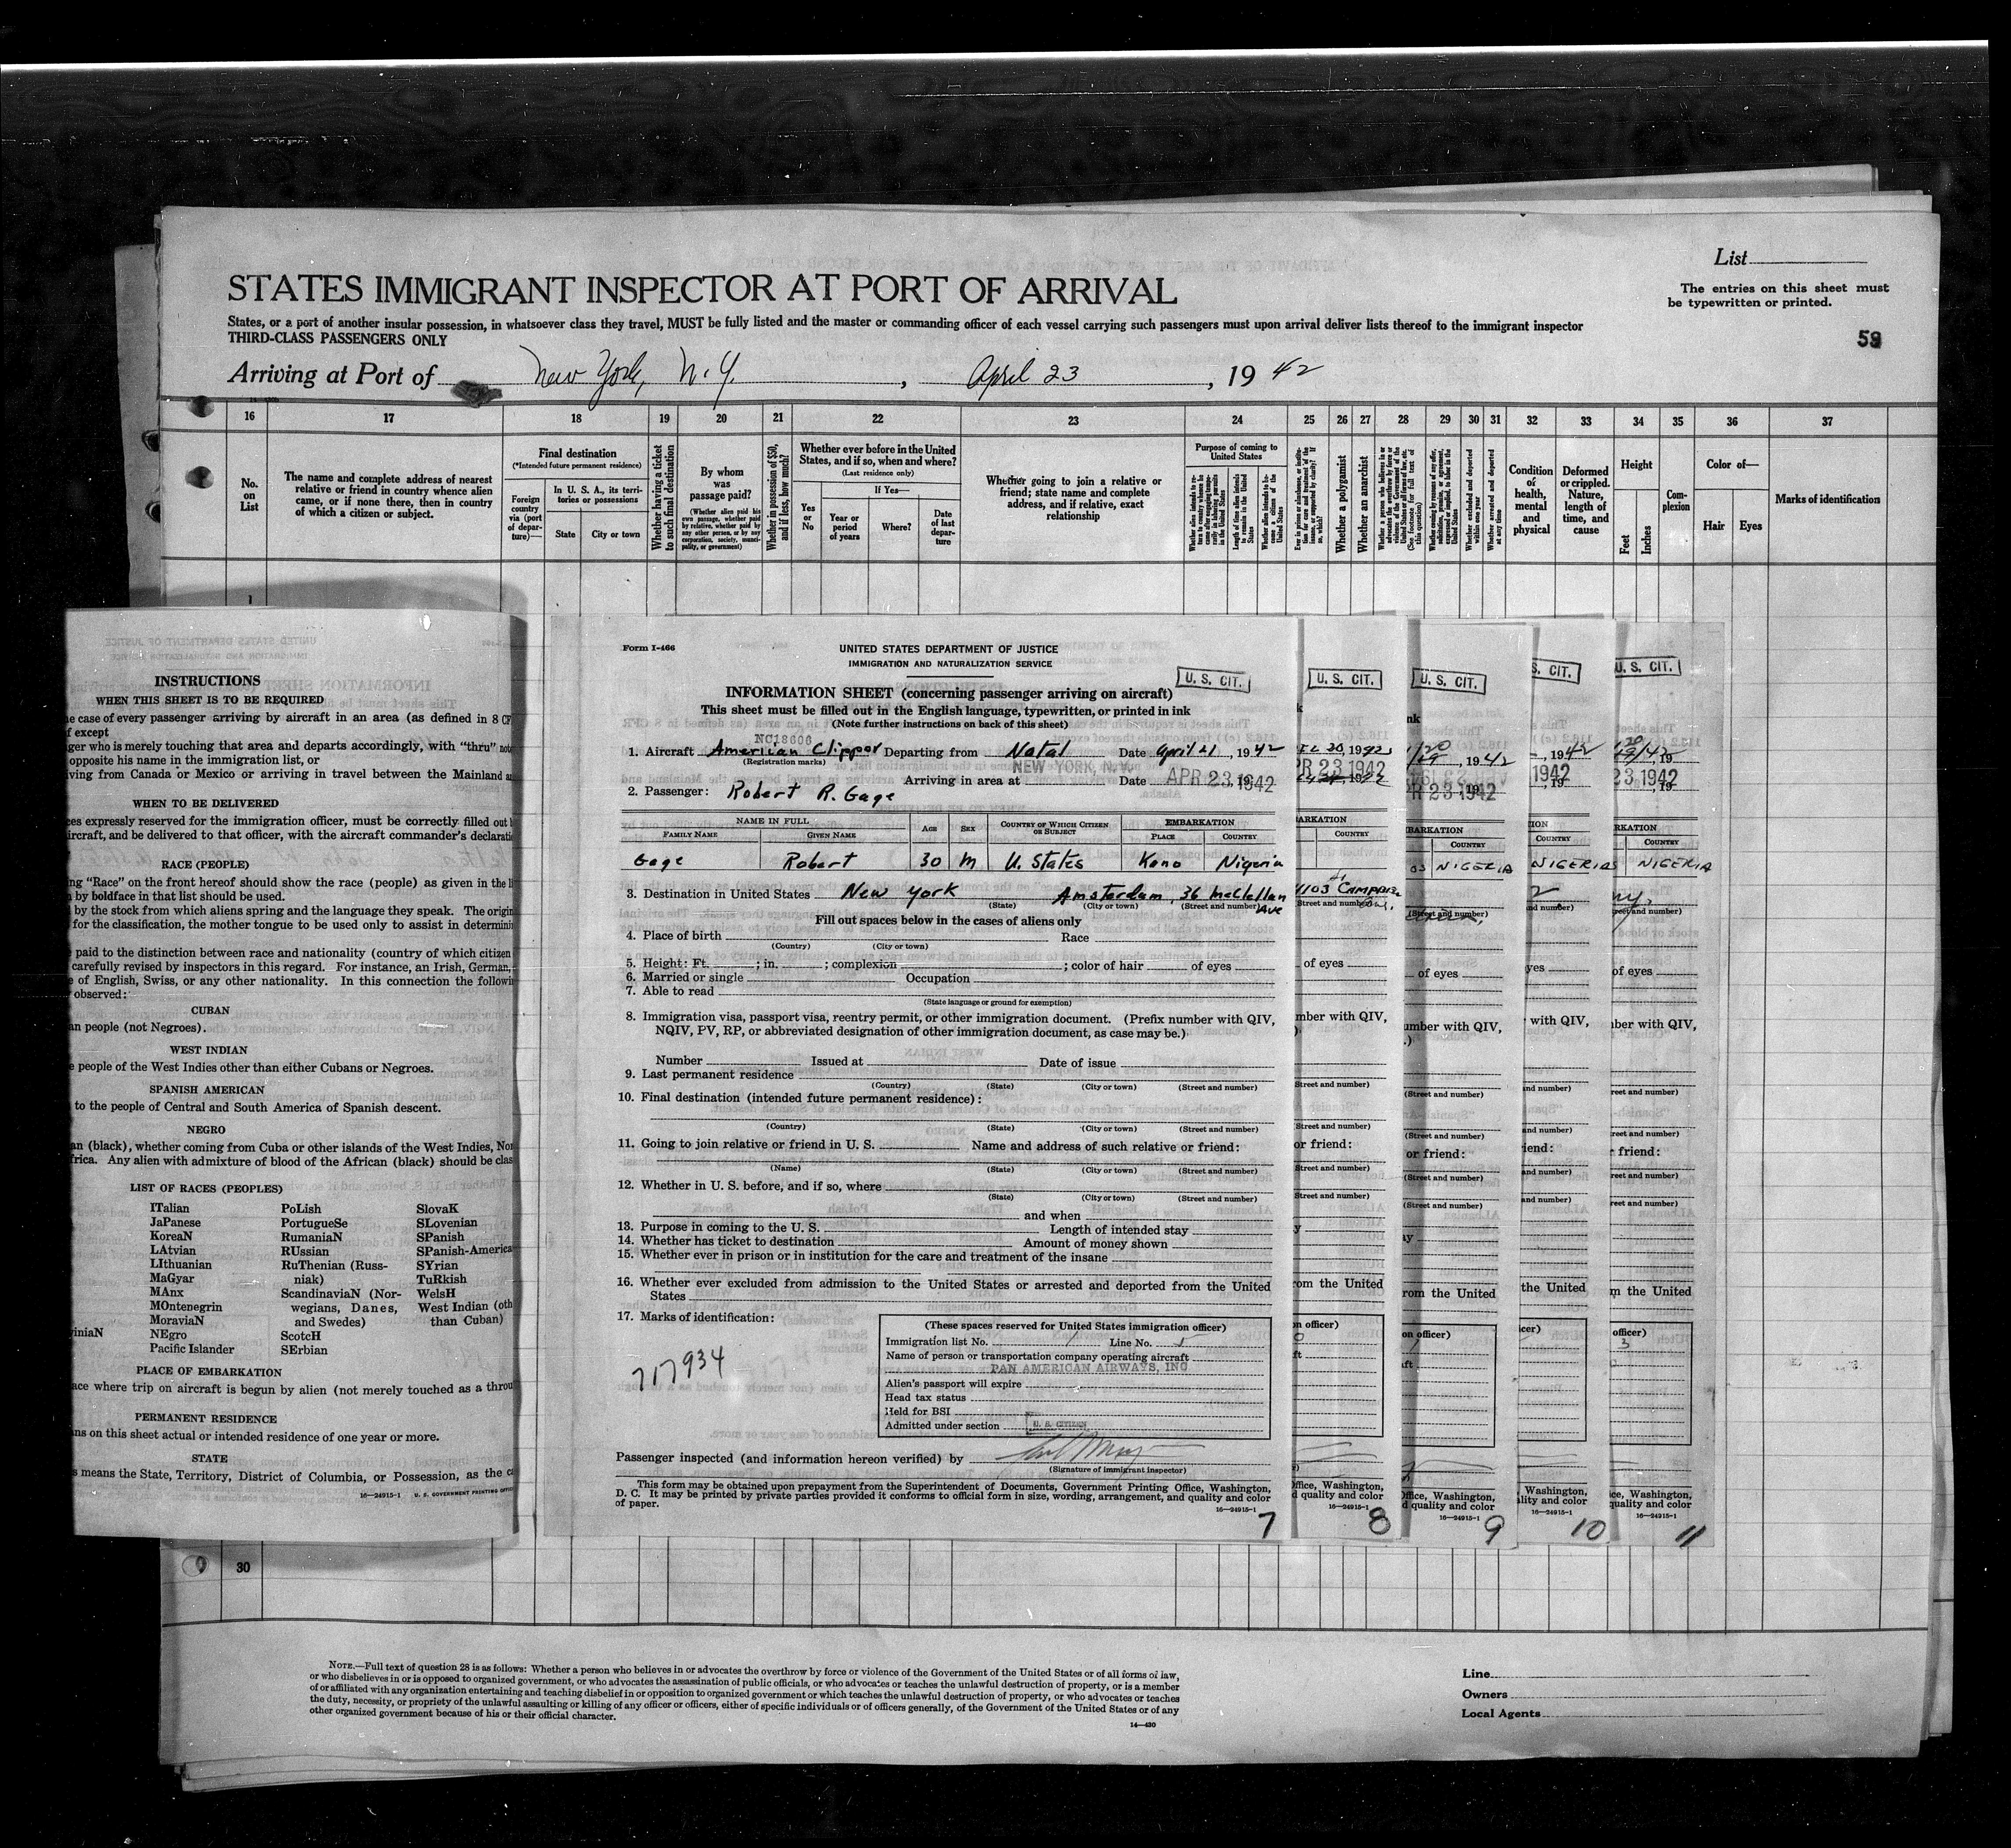 List
STATES IMMIGRANT INSPECTOR AT PORT OF ARRIVAL
The entries on this sheet must
be typewritten or printed.
States, or a port of another insular possession, in whatsoever class they travel, MUST be fully listed and the master or commanding officer of each vessel carrying such passengers must upon arrival deliver lists thereof to the immigrant inspector
THIRD-CLASS PASSENGERS ONLY
59
Arriving at Port of New York, N.Y., April 23, 1942
16 17 18 19 20 21 22 23 24 25 26 27 28 29 30 31 32 33 34 35 36 37
No. on List
The name and complete address of nearest relative or friend in country whence alien came, or if none there, then in country of which a citizen or subject.
Final destination
(*Intended future permanent residence)
Foreign country via (port of departure)—
In U. S. A., its territories or possessions
State
City or town
Whether having a ticket to such final destination
By whom was passage paid?
(Whether alien paid his own passage, whether paid by relative, whether paid by any other person, or by any corporation, society, municipality, or government)
Whether in possession of $50, and if less, how much?
Whether ever before in the United States, and if so, when and where?
(Last residence only)
Yes or No
If Yes—
Year or period of years
Where?
Date of last departure
Whether going to join a relative or friend; state name and complete address, and if relative, exact relationship
Purpose of coming to United States
Length of time alien intends to remain in the United States
Whether a polygamist
Whether an anarchist
Whether excluded and deported within one year
Whether arrested and deported at any time
Condition of health, mental and physical
Deformed or crippled. Nature, length of time, and cause
Height
Feet
Inches
Complexion
Color of—
Hair
Eyes
Marks of identification
1
INSTRUCTIONS
WHEN THIS SHEET IS TO BE REQUIRED
e case of every passenger arriving by aircraft in an area (as defined in 8 CF
f except
ger who is merely touching that area and departs accordingly, with "thru" note
opposite his name in the immigration list, or
iving from Canada or Mexico or arriving in travel between the Mainland a
WHEN TO BE DELIVERED
es expressly reserved for the immigration officer, must be correctly filled out b
ircraft, and be delivered to that officer, with the aircraft commander's declarati
RACE (PEOPLE)
ng "Race" on the front hereof should show the race (people) as given in the li
by boldface in that list should be used.
by the stock from which aliens spring and the language they speak. The origin
for the classification, the mother tongue to be used only to assist in determini
paid to the distinction between race and nationality (country of which citizen
carefully revised by inspectors in this regard. For instance, an Irish, German,
e of English, Swiss, or any other nationality. In this connection the followin
observed:
CUBAN
an people (not Negroes).
WEST INDIAN
e people of the West Indies other than either Cubans or Negroes.
SPANISH AMERICAN
to the people of Central and South America of Spanish descent.
NEGRO
an (black), whether coming from Cuba or other islands of the West Indies, Nor
frica. Any alien with admixture of blood of the African (black) should be clas
LIST OF RACES (PEOPLES)
ITalian PoLish SlovaK
JaPanese PortugueSe SLovenian
KoreaN RumaniaN SPanish
LAtvian RUssian SPanish-America
LIthuanian RuThenian (Russ- SYrian
MaGyar niak) TuRkish
MAnx ScandinaviaN (Nor- WelsH
MOntenegrin wegians, Danes, West Indian (oth
MoraviaN and Swedes) than Cuban)
viniaN NEgro ScotcH
Pacific Islander SErbian
PLACE OF EMBARKATION
ace where trip on aircraft is begun by alien (not merely touched as a throu
PERMANENT RESIDENCE
ns on this sheet actual or intended residence of one year or more.
STATE
s means the State, Territory, District of Columbia, or Possession, as the ca
16—24915-1 U. S. GOVERNMENT PRINTING OFFIC
Form I-466
UNITED STATES DEPARTMENT OF JUSTICE
IMMIGRATION AND NATURALIZATION SERVICE
U. S. CIT.
INFORMATION SHEET (concerning passenger arriving on aircraft)
This sheet must be filled out in the English language, typewritten, or printed in ink
(Note further instructions on back of this sheet)
NC18606
1. Aircraft American Clipper Departing from Natal Date April 21, 1942
(Registration marks)
Arriving in area at NEW YORK, N.Y. Date APR 23 1942
2. Passenger: Robert R. Gage
NAME IN FULL
FAMILY NAME GIVEN NAME AGE SEX COUNTRY OF WHICH CITIZEN OR SUBJECT EMBARKATION PLACE COUNTRY
Gage Robert 30 M U. States Kano Nigeria
3. Destination in United States New York Amsterdam, 36 McClellan Ave
(State) (City or town) (Street and number)
Fill out spaces below in the cases of aliens only
4. Place of birth Race
(Country) (City or town)
5. Height: Ft. ; in. ; complexion ; color of hair of eyes
6. Married or single Occupation
7. Able to read
(State language or ground for exemption)
8. Immigration visa, passport visa, reentry permit, or other immigration document. (Prefix number with QIV,
NQIV, PV, RP, or abbreviated designation of other immigration document, as case may be.)
Number Issued at Date of issue
9. Last permanent residence
(Country) (State) (City or town) (Street and number)
10. Final destination (intended future permanent residence):
(Country) (State) (City or town) (Street and number)
11. Going to join relative or friend in U. S. Name and address of such relative or friend:
(Name) (State) (City or town) (Street and number)
12. Whether in U. S. before, and if so, where
(State) (City or town) (Street and number)
and when
13. Purpose in coming to the U. S. Length of intended stay
14. Whether has ticket to destination Amount of money shown
15. Whether ever in prison or in institution for the care and treatment of the insane
16. Whether ever excluded from admission to the United States or arrested and deported from the United
States
17. Marks of identification:
717934
(These spaces reserved for United States immigration officer)
Immigration list No. 1 Line No. 5
Name of person or transportation company operating aircraft
PAN AMERICAN AIRWAYS, INC
Alien's passport will expire
Head tax status
Held for BSI
Admitted under section U. S. CITIZEN
Passenger inspected (and information hereon verified) by
(Signature of immigrant inspector)
This form may be obtained upon prepayment from the Superintendent of Documents, Government Printing Office, Washington,
D. C. It may be printed by private parties provided it conforms to official form in size, wording, arrangement, and quality and color
of paper.
16—24915-1
7
U. S. CIT.
APR 23 1942
COUNTRY
1103 Campbell
8
U. S. CIT.
1942
NIGERIA
9
S. CIT.
1942
NIGERIA
10
U. S. CIT.
23 1942
NIGERIA
11
30
NOTE.—Full text of question 28 is as follows: Whether a person who believes in or advocates the overthrow by force or violence of the Government of the United States or of all forms of law,
or who disbelieves in or is opposed to organized government, or who advocates the assassination of public officials, or who advocates or teaches the unlawful destruction of property, or is a member
of or affiliated with any organization entertaining and teaching disbelief in or opposition to organized government or which teaches the unlawful destruction of property, or who advocates or teaches
the duty, necessity, or propriety of the unlawful assaulting or killing of any officer or officers, either of specific individuals or of officers generally, of the Government of the United States or of any
other organized government because of his or their official character.
14—430
Line
Owners
Local Agents